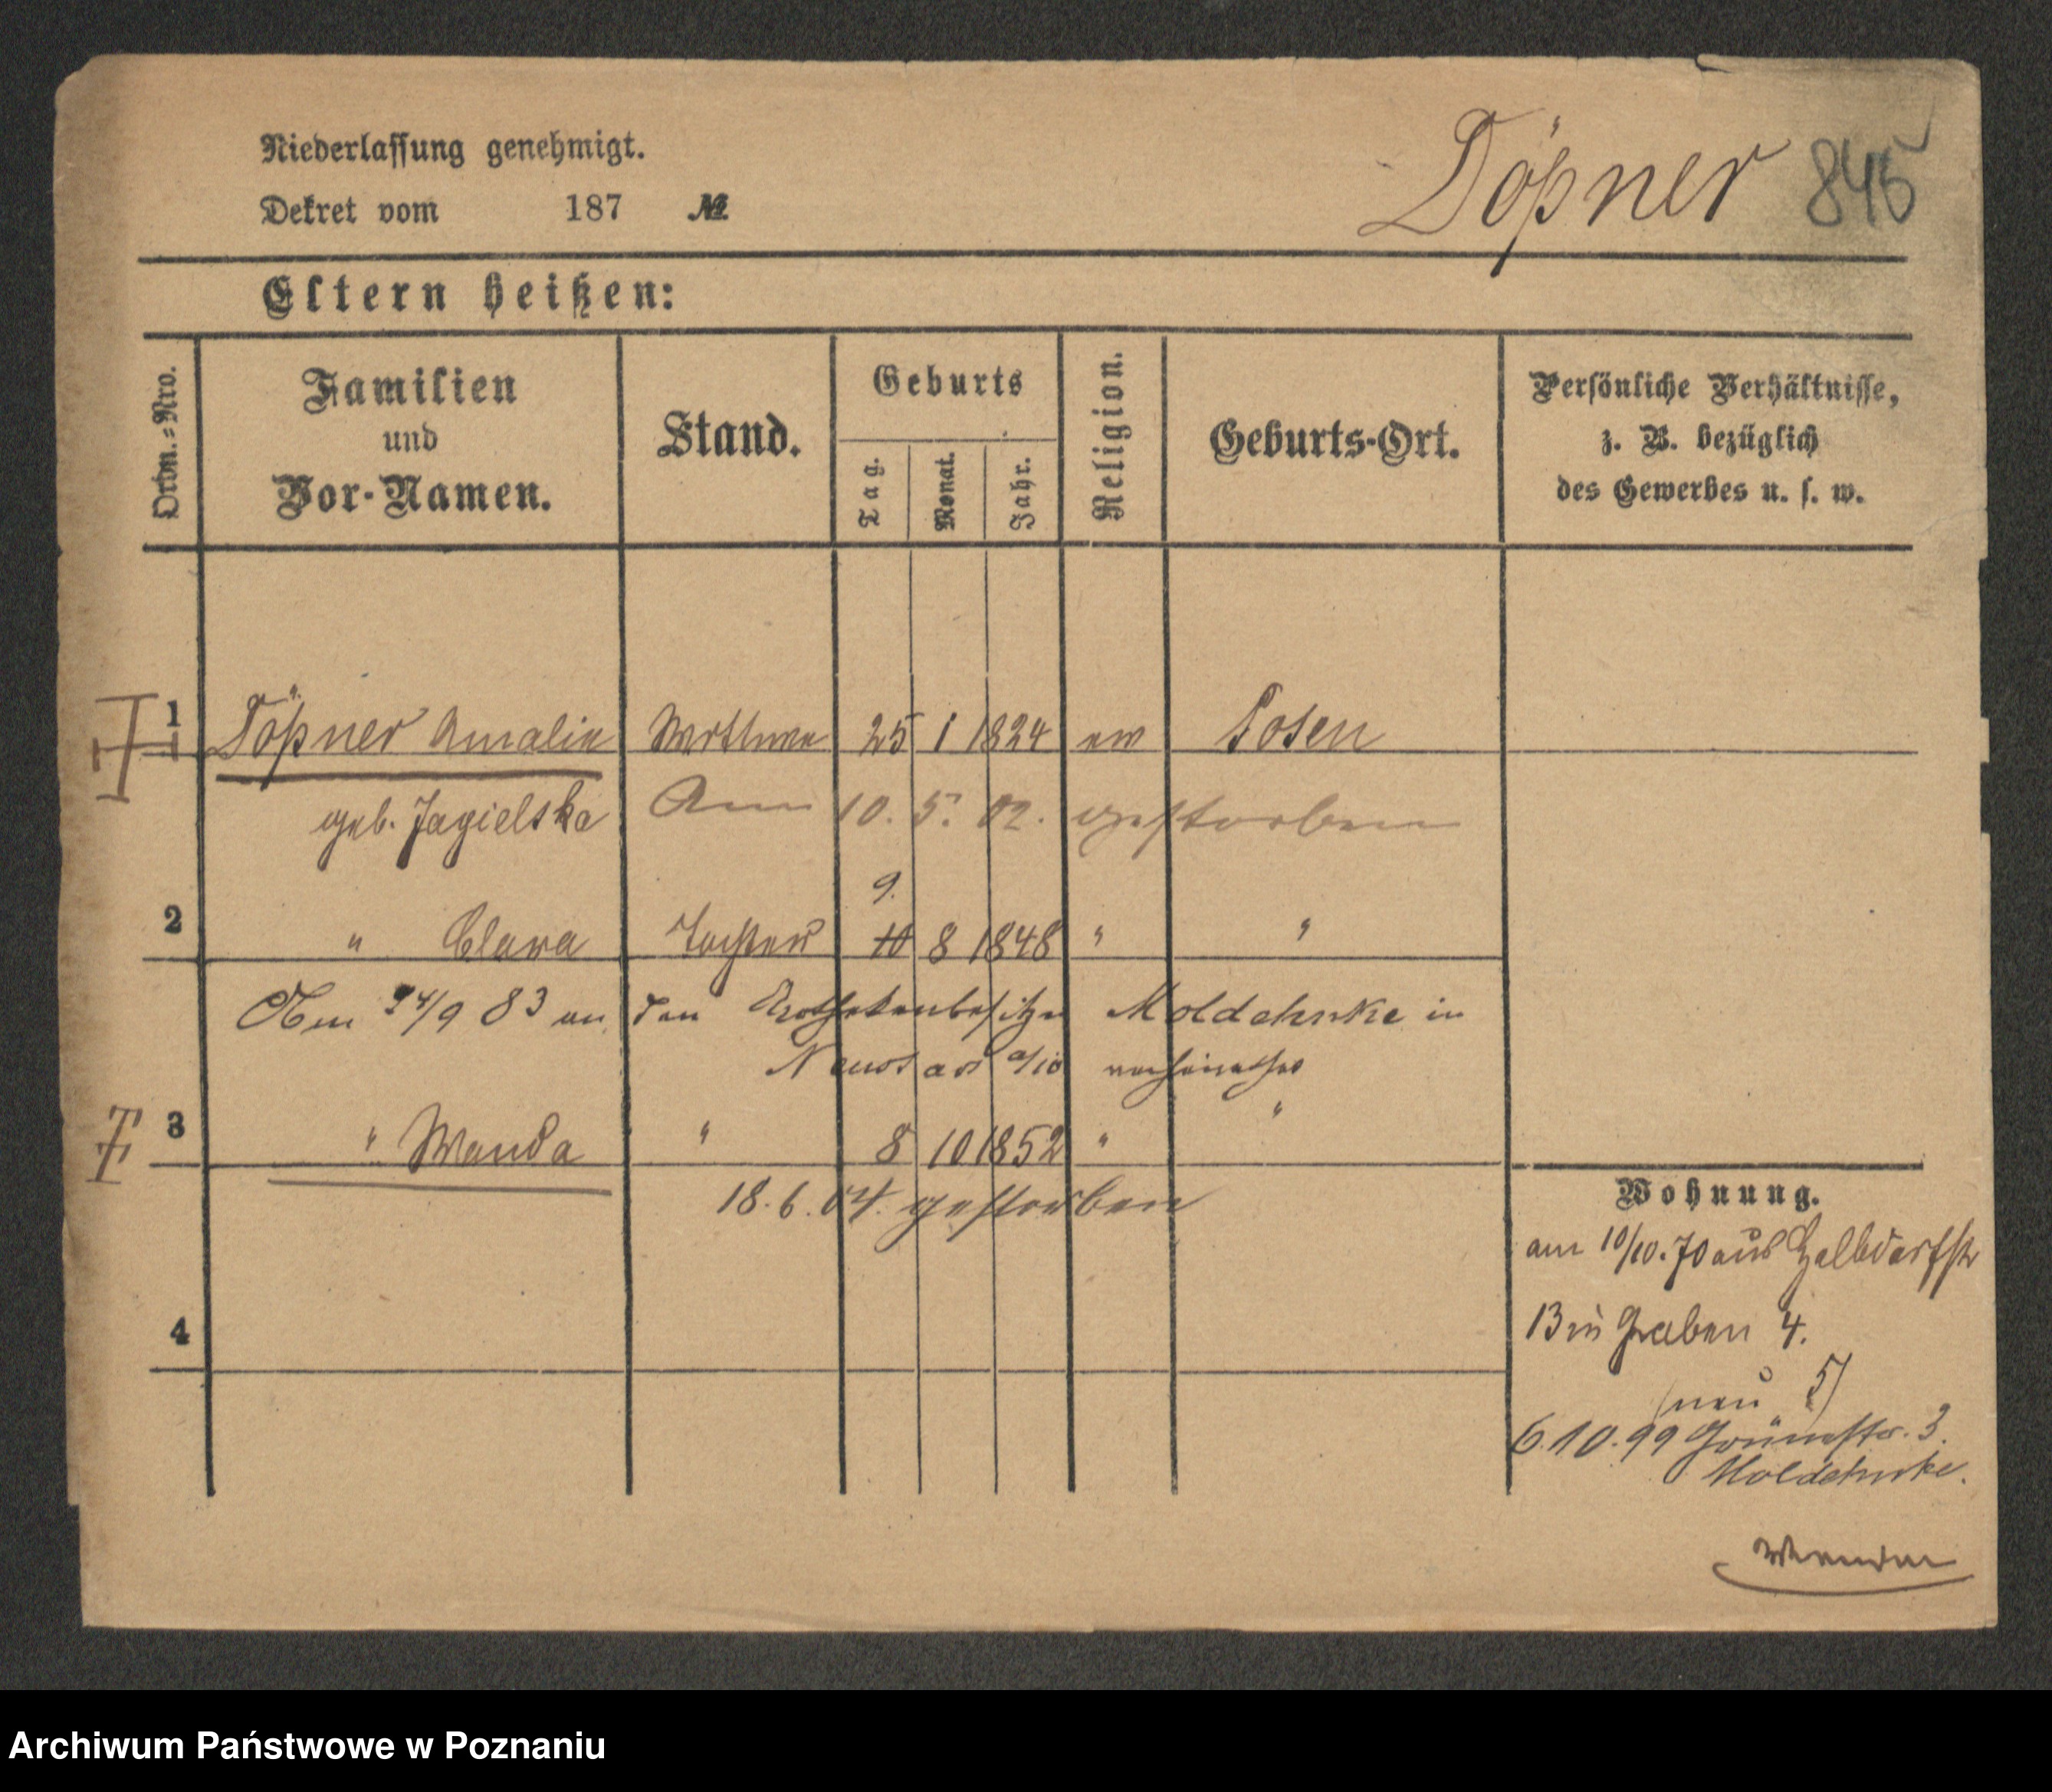 Niederlassung genehmigt.
Dekret vom 187 №
Döpner 845
Eltern heißen:
Ordn.=Nro.
Familien
und
Vor-Namen.
Stand.
Geburts
Tag.
Monat.
Jahr.
Religion.
Geburts-Ort.
Persönliche Verhältnisse,
z. B. bezüglich
des Gewerbes u. s. w.
1 Döpner Amalie Wittwe 25 1 1824 ev Posen
geb. Jagielska Am 10. 5. 02. gestorben
9.
2 " Clara Tochter 10 8 1848 " "
Am 24/9 83 an den Apothekenbesitzer Moldehnke in
verheirathet
3 " Wanda " 8 10 1852 " "
18. 6. 04. gestorben
4
Wohnung.
am 10/10. 70 aus Halbdorfstr
13 in Graben 4.
(neu 5)
6. 10. 99 Grünestr. 3.
Moldehnke.